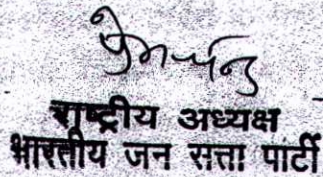 प्रेमचन्द
राष्ट्रीय अध्यक्ष
भारतीय जन सत्ता पार्टी